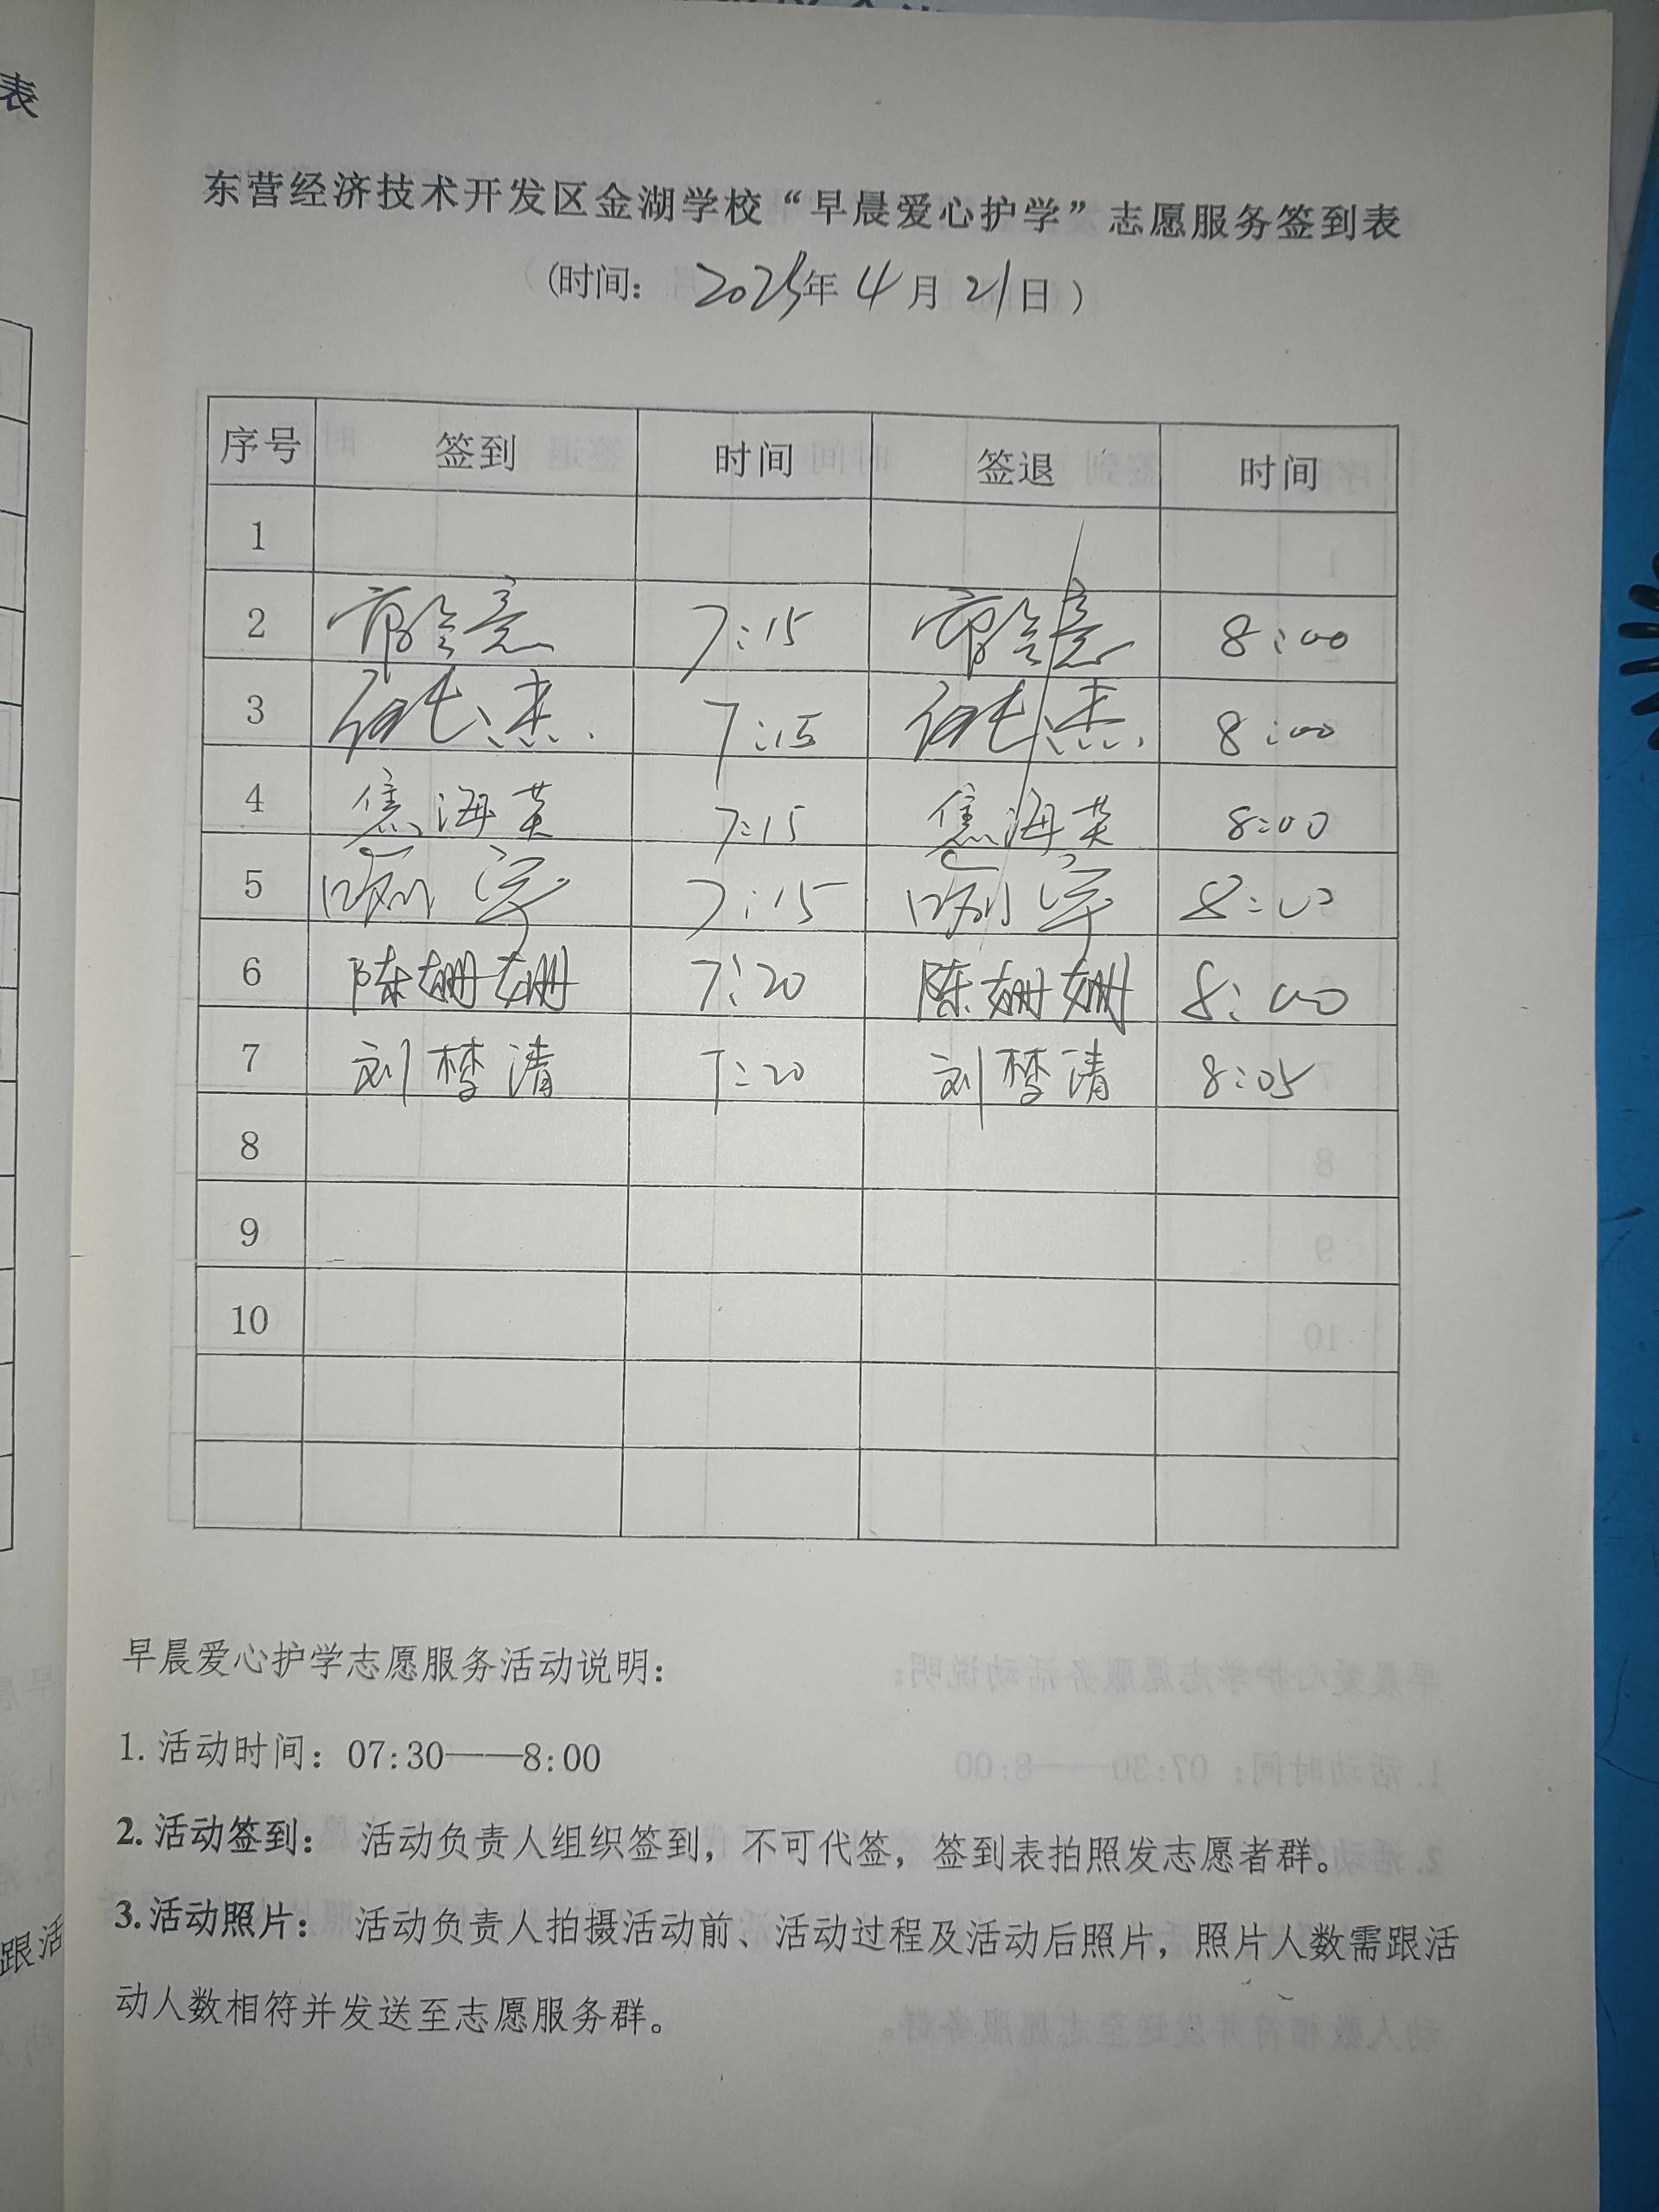 表
东营经济技术开发区金湖学校“早晨爱心护学”志愿服务签到表
(时间： 2025年 4月 21日）
序号 签到 时间 签退 时间
1
2 7:15 8:00
3 7:15 8:00
4 焦海英 7:15 8:00
5 7:15 8:00
6 陈姗姗 7:20 陈姗姗 8:00
7 刘梦清 7:20 刘梦清 8:05
8
9
10
早晨爱心护学志愿服务活动说明：
1. 活动时间：07:30——8:00
2. 活动签到： 活动负责人组织签到，不可代签，签到表拍照发志愿者群。
3. 活动照片： 活动负责人拍摄活动前、活动过程及活动后照片，照片人数需跟活
动人数相符并发送至志愿服务群。
跟活